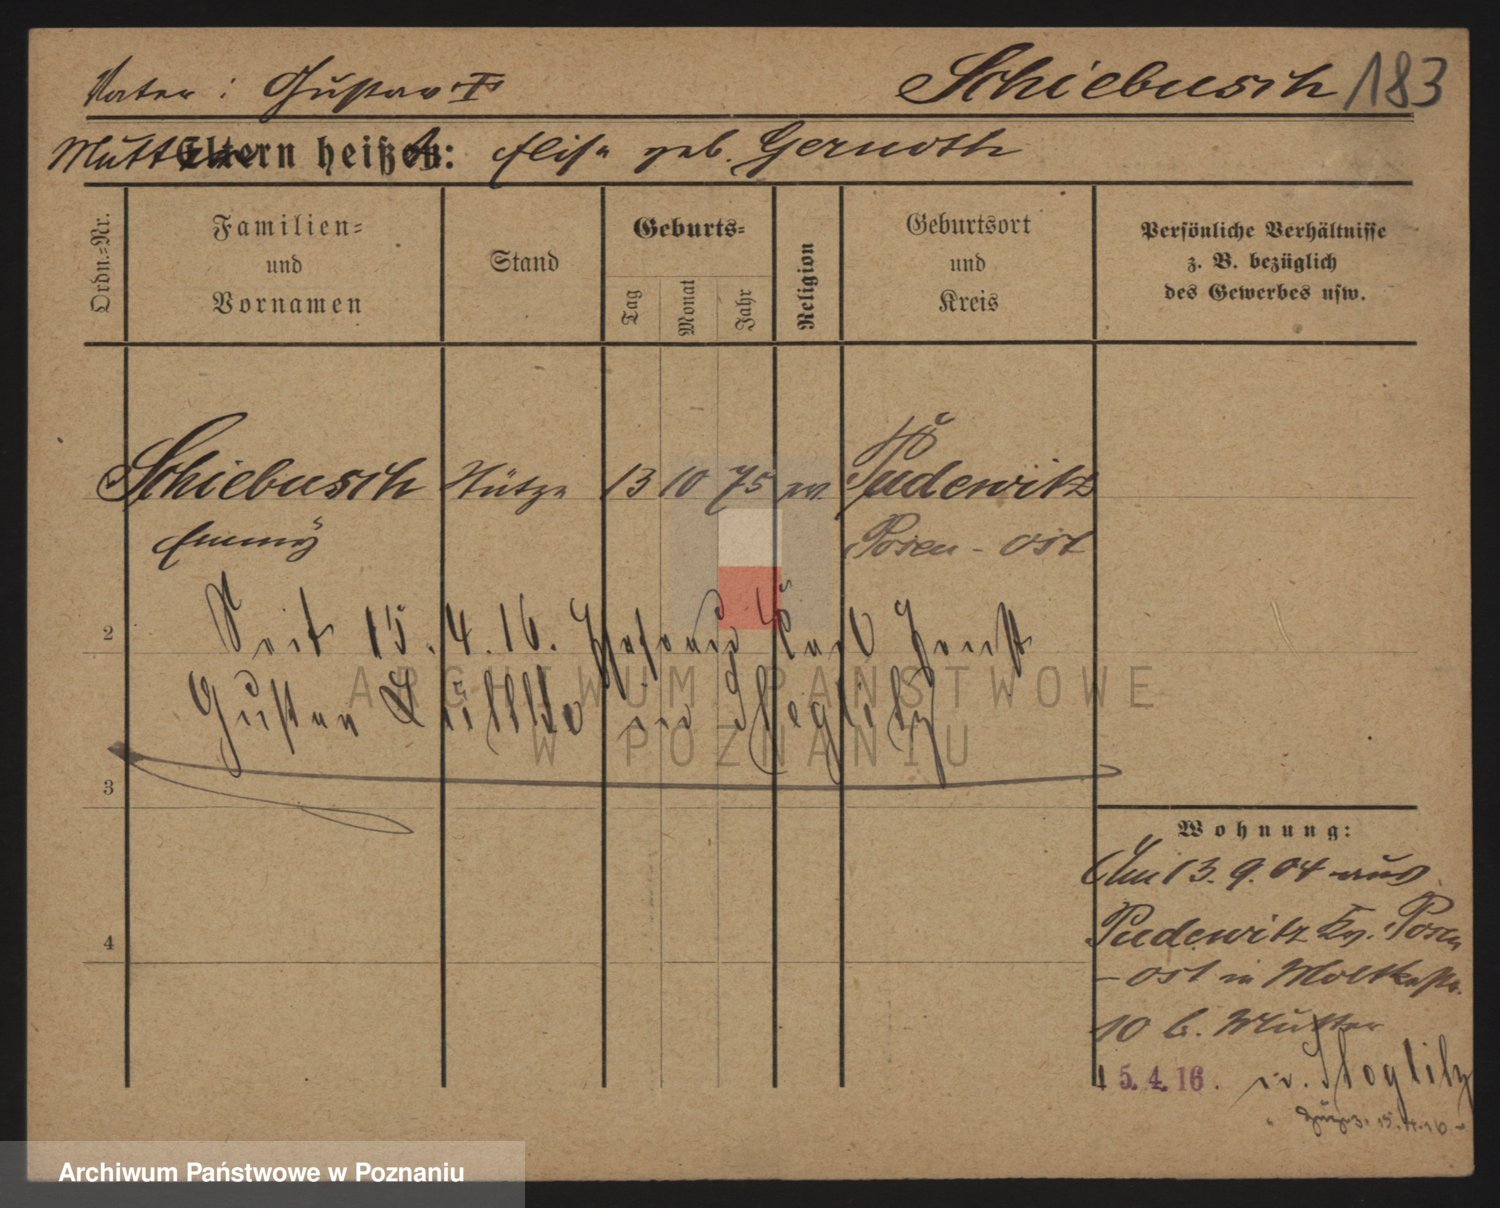 Vater: Gustav † Schiebusch 183
Mutter Eltern heißen: Elise geb. Gernoth
Ordn.-Nr.
Familien-
und
Vornamen
Stand
Geburts-
Tag
Monat
Jahr
Religion
Geburtsort
und
Kreis
Persönliche Verhältnisse
z. B. bezüglich
des Gewerbes usw.
Schiebusch Stütze 13 10 75 ev Pudewitz
Emmy Posen-Ost
2
Seit 15.4.16. Karl Ernst
Gustav in Steglitz
3
ARCHIWUM PAŃSTWOWE
W POZNANIU
Wohnung:
Am 13.9.04 aus
Pudewitz Kr. Posen
-Ost in Moltkestr.
10 b. Mutter
4
15.4.16. in Steglitz
15.4.16
Archiwum Państwowe w Poznaniu